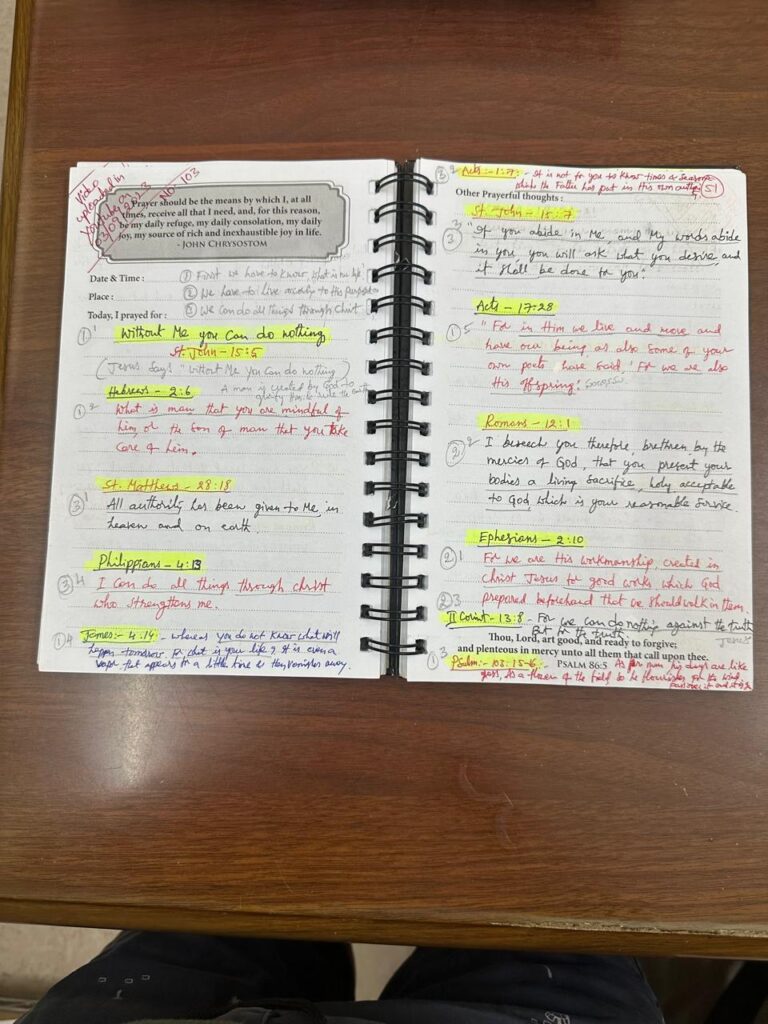 Video
uploaded in
Youtube on
3/09/2023
NO-103
Prayer should be the means by which I, at all
times, receive all that I need, and, for this reason,
be my daily refuge, my daily consolation, my daily
joy, my source of rich and inexhaustible joy in life.
- JOHN CHRYSOSTOM
Date & Time : ① First we have to know what is our life
Place : ② We have to live according to His purpose
Today, I prayed for : ③ We can do all things through Christ
①1 Without Me you can do nothing
St. John - 15:5
(Jesus Says "Without Me You can do nothing)
Hebrews - 2:6 A man is created by God to
glorify Him
①2 What is man that you are mindful of
him, or the son of man that you take
care of him.
St. Matthews - 28:18
③1 All authority has been given to Me, in
heaven and on earth.
Philippians - 4:13
③4 I can do all things through christ
who strengthens me.
①4 James:- 4:14 - whereas you do not know what will
happen tomorrow. For what is your life? It is even a
vapor that appears for a little time & then vanishes away.
③2 Acts:- 1:7:- It is not for you to know times or seasons
which the Father has put in His own authority
51
Other Prayerful thoughts :
St. John - 15:7
③3 "If you abide in Me, and My words abide
in you, you will ask what you desire, and
it shall be done for you."
Acts - 17:28
①5 "For in Him we live and move and
have our being as also some of your
own poets have said, 'For we are also
His offspring.'
Romans - 12:1
②2 I beseech you therefore, brethren by the
mercies of God, that you present your
bodies a living sacrifice, holy acceptable
to God, which is your reasonable service.
Ephesians - 2:10
②1 For we are His workmanship, created in
christ Jesus for good works which God
②3 prepared beforehand that we should walk in them.
II Corint - 13:8 - For we can do nothing against the truth
But for the truth. Jesus
Thou, Lord, art good, and ready to forgive;
and plenteous in mercy unto all them that call upon thee.
①3 Psalm:- 103:15-6, PSALM 86:5 As for man, his days are like
grass, As a flower of the field, so he flourishes For the wind
passes over it and it is